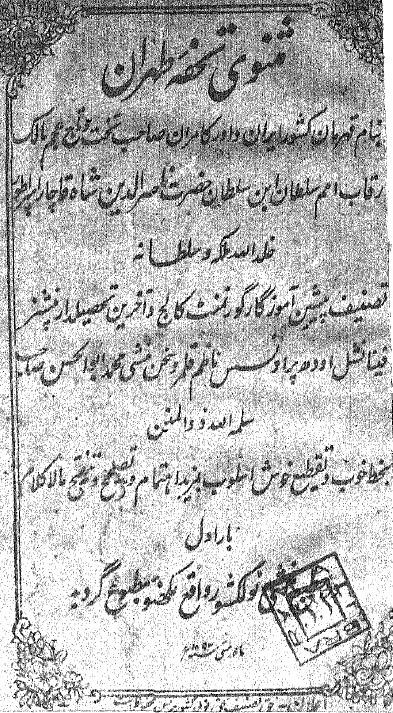 مثنوی تحفه طهران
بنام قهرمان کشور ایران داور کامران صاحب تخت و تاج عجم مالک
رقاب امم سلطان ابن سلطان حضرت ناصرالدین شاه قاجار
خلد الله ملکه و سلطانه
تصنیف پیشین آموزگار گورنمنٹ کالج و آخرین تحصیلدار پنشنر
اودھ ناظم قلمرو سخن منشی محمد ابوالحسن صاحب
سلمه الله ذو المنن
بخط خوب و تقطیع خوش اسلوب بمزید اهتمام و تصحیح و تنقیح مالا کلام
بار اول
نولکشور واقع لکھنؤ مطبوع گردید
ماه مئی